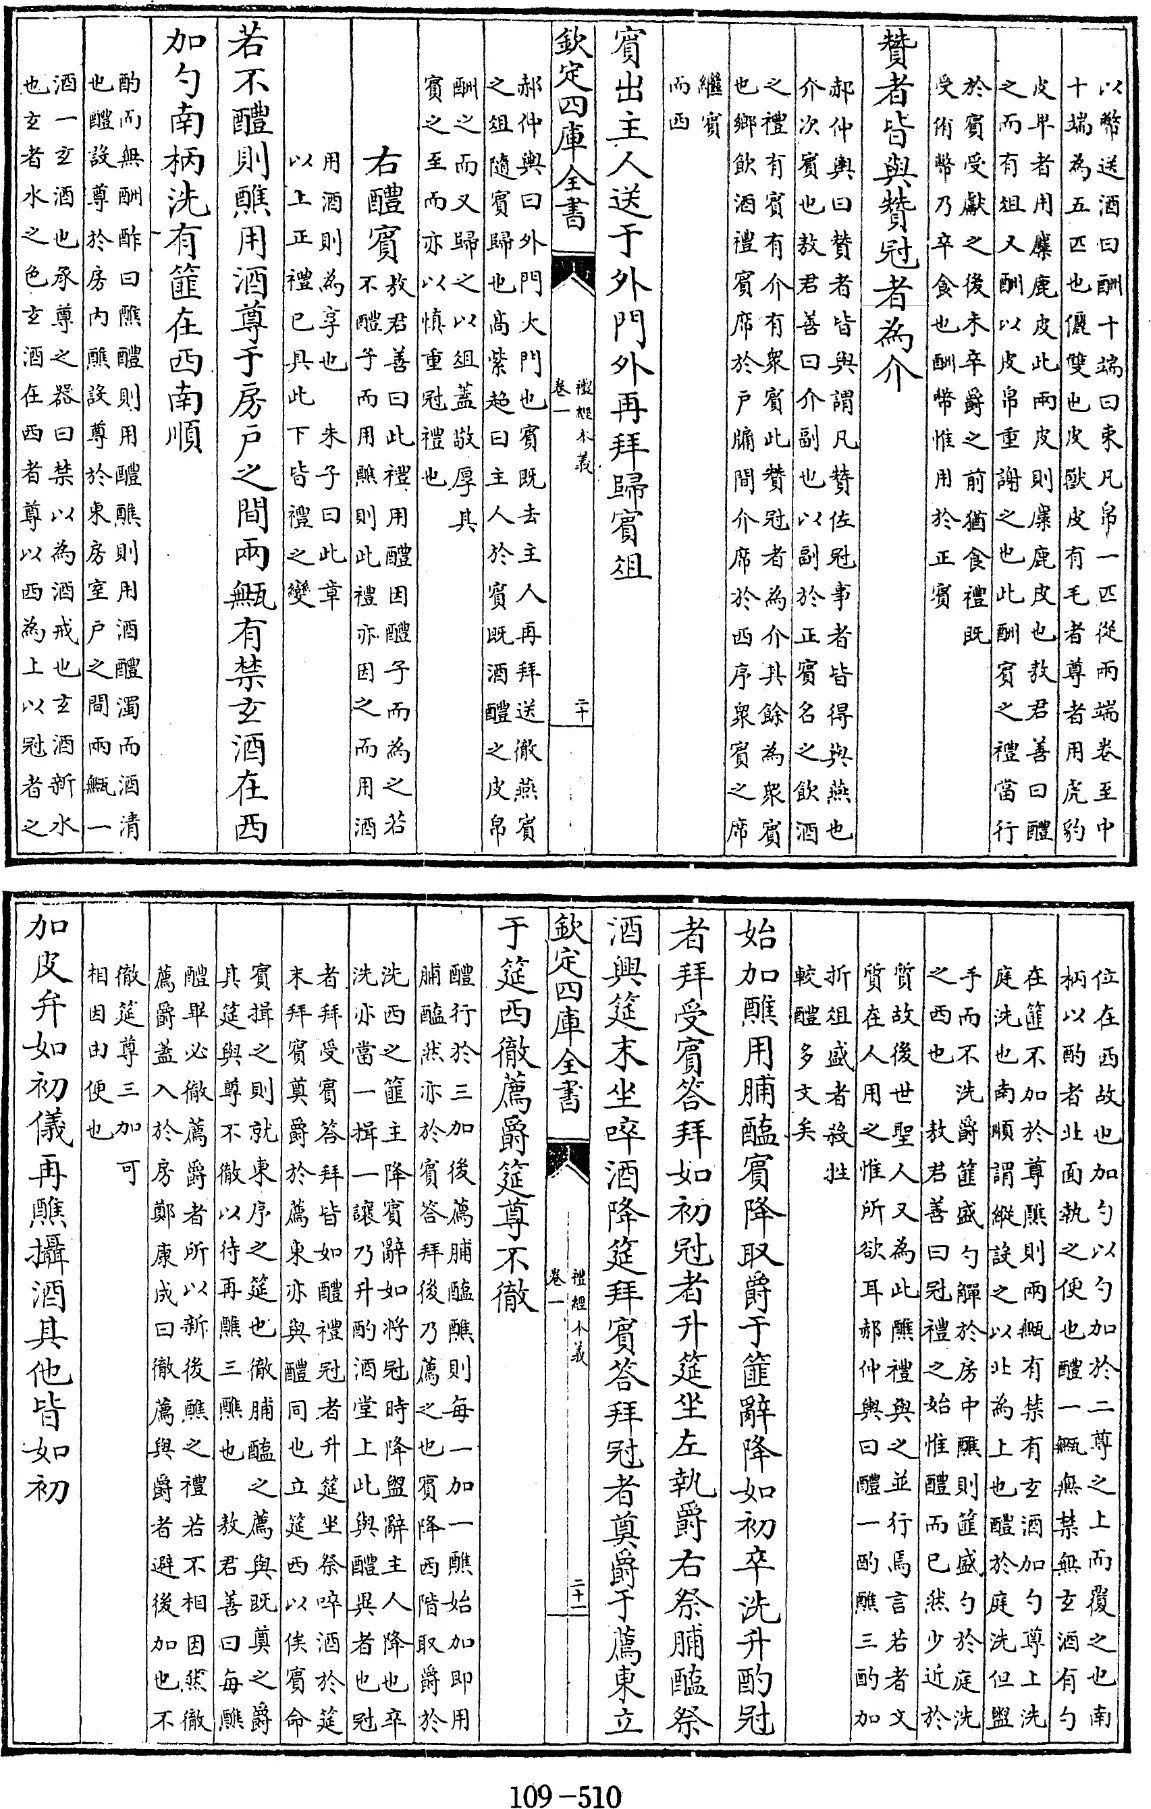 以幣送酒曰酬十端曰束凡帛一匹從兩端卷至中
十端為五匹也儷雙也皮獸皮有毛者尊者用虎豹
皮卑者用麋鹿皮此兩皮則麋鹿皮也敖君善曰醴
之而有俎又酬以皮帛重謝之也此酬賓之禮當行
於賓受獻之後未卒爵之前猶食禮既
受侑幣乃卒食也酬幣惟用於正賓
贊者皆與贊冠者為介
郝仲輿曰贊者皆與謂凡贊佐冠事者皆得與燕也
介次賓也敖君善曰介副也以副於正賓名之飲酒
之禮有賓有介有衆賓此贊冠者為介其餘為衆賓
也鄉飲酒禮賓席於戶牖間介席於西序衆賓之席
繼賓
而西
賓出主人送于外門外再拜歸賓俎
欽定四庫全書
禮經本義
卷一
二十
郝仲輿曰外門大門也賓既去主人再拜送徹燕賓
之俎隨賓歸也高紫超曰主人於賓既酒醴之皮帛
酬之而又歸之以俎蓋敬厚其
賓之至而亦以慎重冠禮也
右醴賓
敖君善曰此禮用醴因醴子而為之若
不醴子而用醮則此禮亦因之而用酒
用酒則為享也 朱子曰此章
以上正禮已具此下皆禮之變
若不醴則醮用酒尊于房戶之間兩甒有禁玄酒在西
加勺南柄洗有篚在西南順
酌而無酬酢曰醮醴則用醴醮則用酒醴濁而酒清
也醴設尊於房內醮設尊於東房室戶之間兩甒一
酒一玄酒也承尊之器曰禁以為酒戒也玄酒新水
也玄者水之色玄酒在西者尊以西為上以冠者之
位在西故也加勺以勺加於二尊之上而覆之也南
柄以酌者北面執之便也醴一甒無禁無玄酒有勺
在篚不加於尊醮則兩甒有禁有玄酒加勺尊上洗
庭洗也南順謂縱設之以北為上也醴於庭洗但盥
手而不洗爵篚盛勺觶於房中醮則篚盛勺於庭洗
之西也 敖君善曰冠禮之始惟醴而已然少近於
質故後世聖人又為此醮禮與之並行焉言若者文
質在人用之惟所欲耳郝仲輿曰醴一酌醮三酌加
折俎盛者殺牲
較醴多文矣
始加醮用脯醢賓降取爵于篚辭降如初卒洗升酌冠
者拜受賓答拜如初冠者升筵坐左執爵右祭脯醢祭
酒興筵末坐啐酒降筵拜賓答拜冠者奠爵于薦東立
欽定四庫全書
禮經本義
卷一
二十一
于筵西徹薦爵筵尊不徹
醴行於三加後薦脯醢醮則每一加一醮始加即用
脯醢然亦於賓答拜後乃薦之也賓降西階取爵於
洗西之篚主降賓辭如將冠時降盥辭主人降也卒
洗亦當一揖一讓乃升酌酒堂上此與醴異者也冠
者拜受賓答拜皆如醴禮冠者升筵坐祭啐酒於筵
末拜賓奠爵於薦東亦與醴同也立筵西以俟賓命
賓揖之則就東序之筵也徹脯醢之薦與既奠之爵
其筵與尊不徹以待再醮三醮也 敖君善曰每醮
醴畢必徹薦爵者所以新後醮之禮若不相因然徹
薦爵蓋入於房鄭康成曰徹薦與爵者避後加也不
徹筵尊三加可
相因由便也
加皮弁如初儀再醮攝酒其他皆如初
109-510